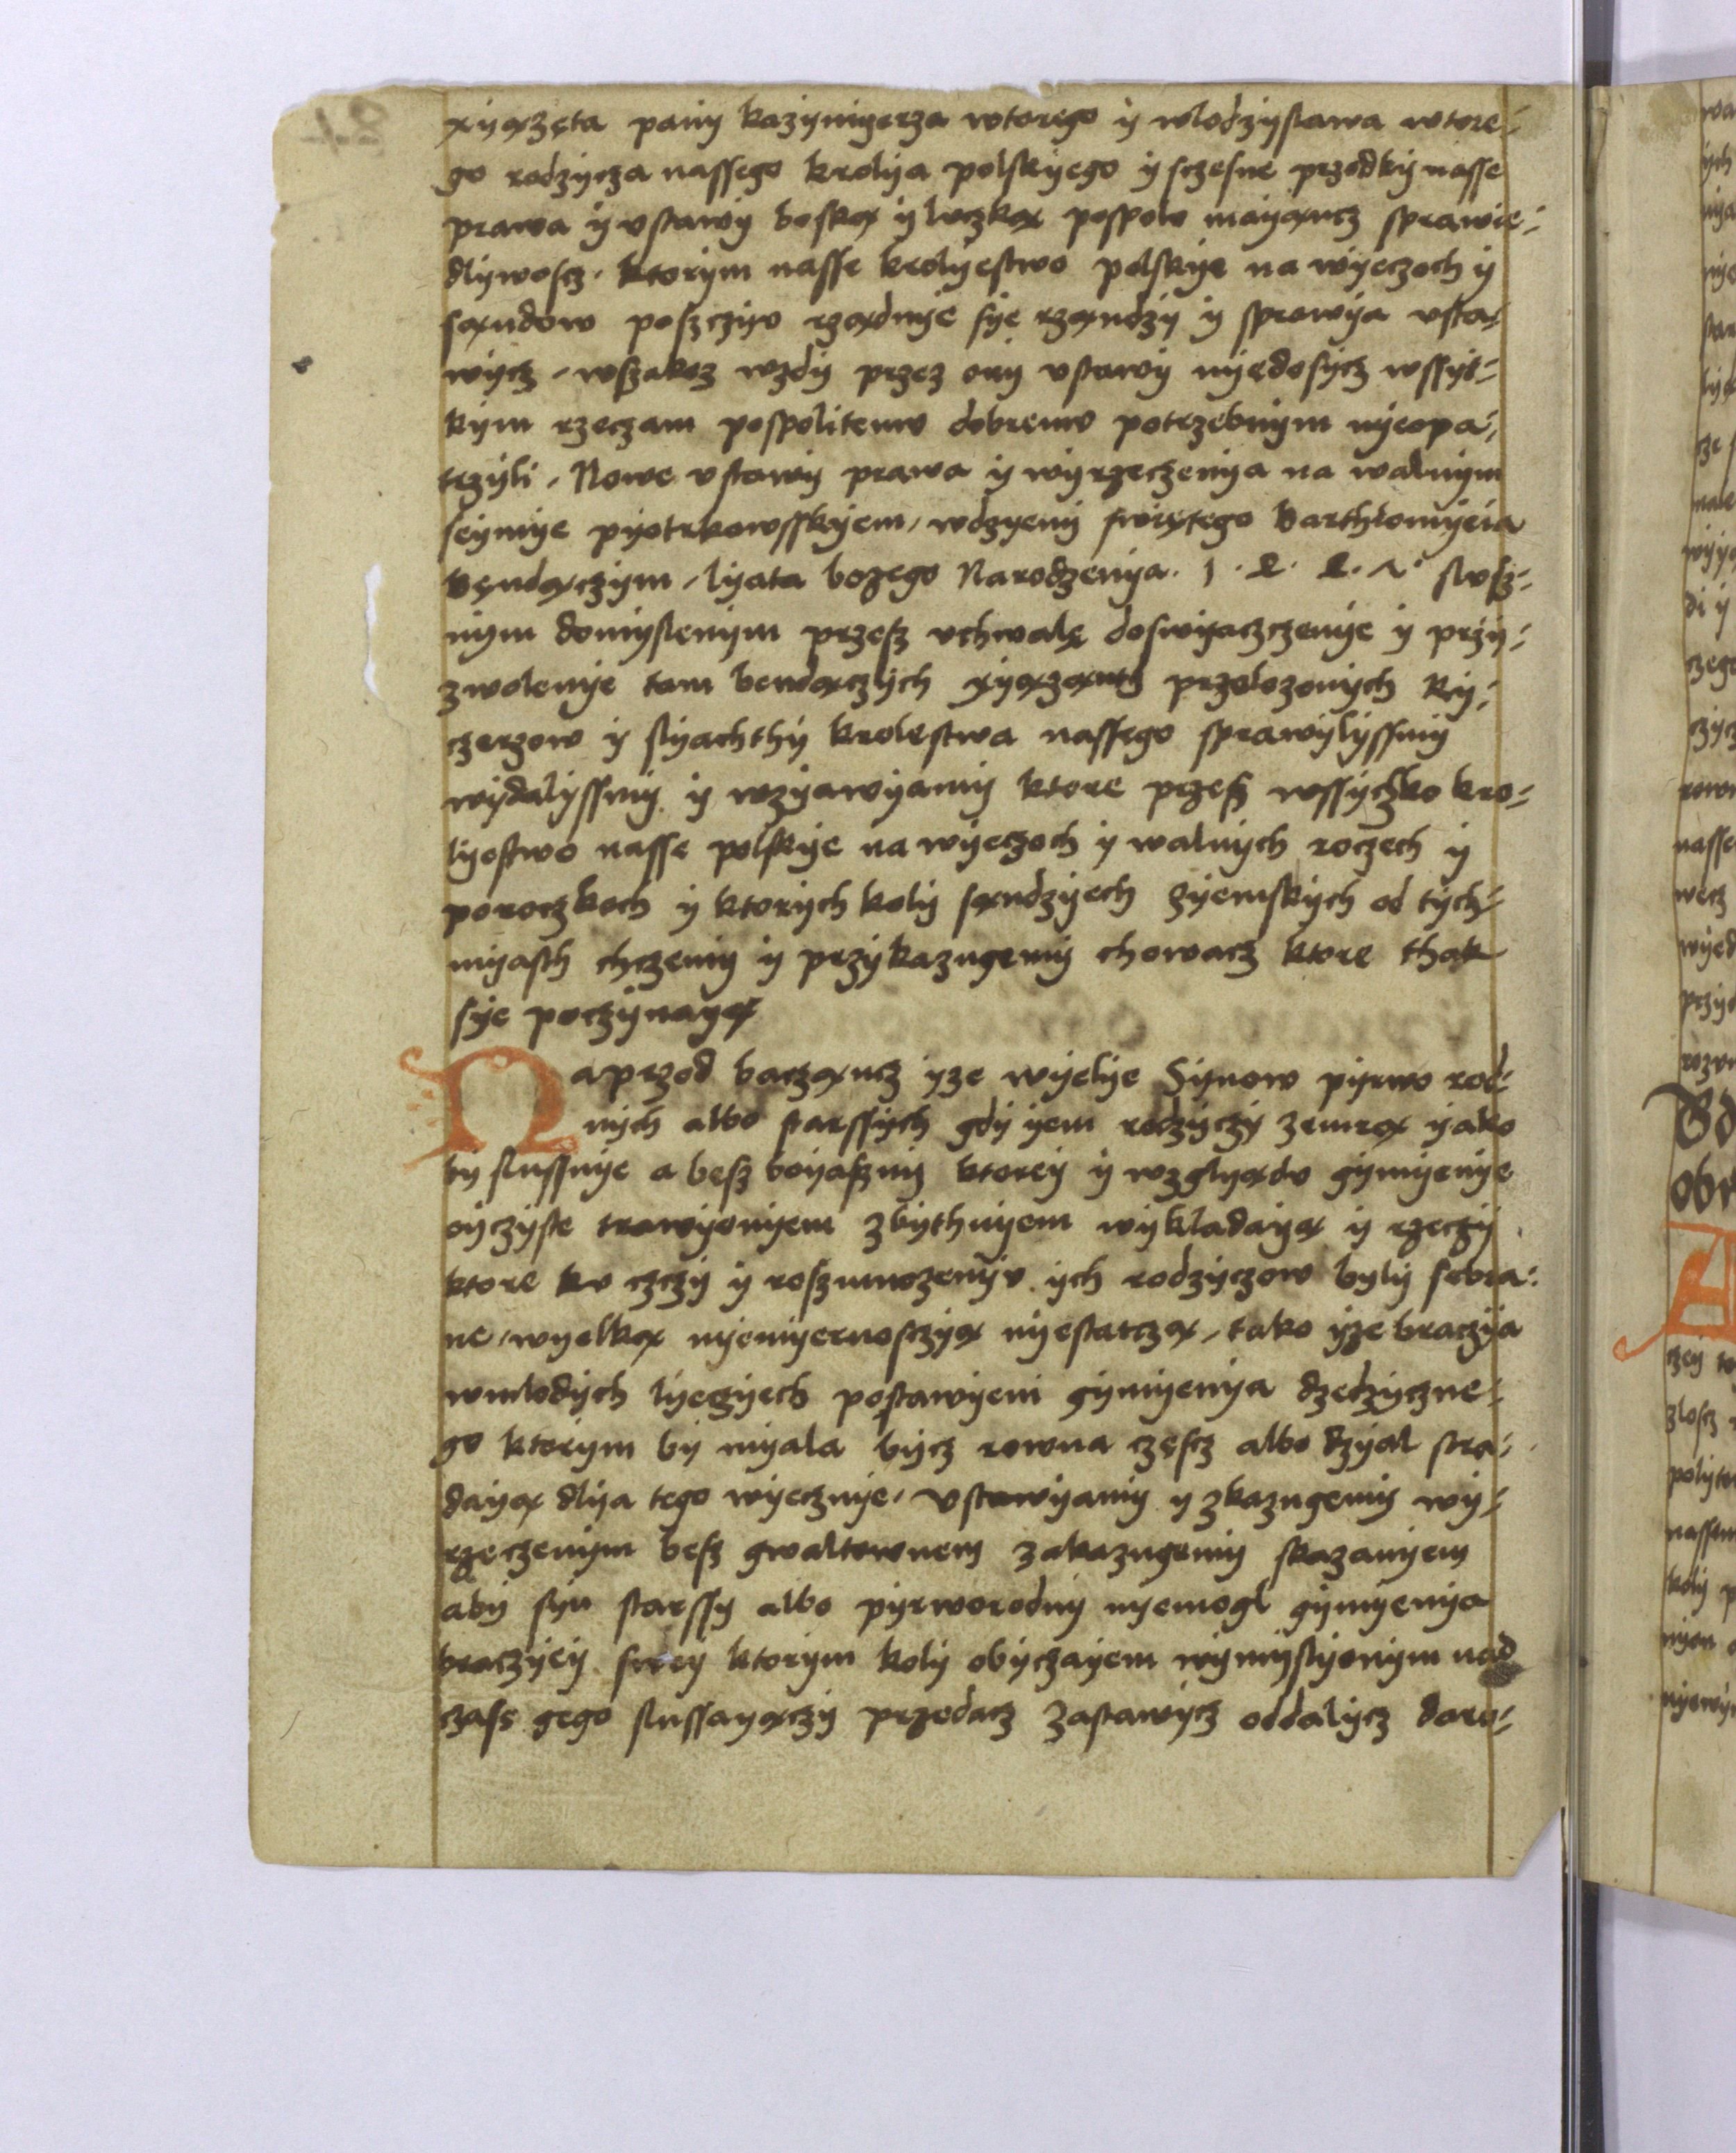 xyąząta pany kazymyerza wtorego y wlodzyslawa wtore-
go rodzycza nassego krolya polskyego y sczesne przodky nasse
prawa y vstawy boską y luczką pospolv mayąncz sprawie-
dlywoscz. ktorym nasse krolyestwo polskye na wyeczoch y
sąndow poszczyv rządnye sye rząndzy y sprawya vsta-
wycz, wszakoz wzdy przez ony vstawy nyedosycz wssyt-
kym rzeczam pospolitemv dobremv potrzebnym nyeopa-
trzyli, Nowe vstawy prawa y wyrzeczenya na walnym
seymye pyotrkowsskyem, wdzyeny swiętego Barthlomyeia
Bęndączym, lyata bozego Narodzenya. 1. 4. 4. 7. slvsz-
nym domyslenym przesz vchwalę doswyaczczenye y przy-
zwolenye tam bendączych xyązanth przelozonych Ry-
czerzow y slyachthy krolestwa nassego sprawylyssmy
wydalyssmy y wzyawyamy ktore przesz wssyczko kro-
lyestwo nasse polskye na wyeczoch y walnych roczech y
poroczkoch y ktorych koly sąndzyech zyemskych od tych-
myasth chczemy y przykazugemy chowacz ktore thak
sye poczynayą
Naprzod baczącz yze wyelye Synow pyrwo rod-
nych albo starssych gdy yem rodzyczy zemrą yako
by slussnye a besz boyaszny ktorey y wzglyądv gymyenye
oyczyste trawyenyem zbythnyem wykladayą y rzeczy
ktore kv czczy y roszmnozenyv ych rodzyczow byly sebra-
ne, wyelką nyemyernosczyą nyestatczą, tako yze braczya
wmlodych lyeczyech postawyeni gymyenya dzedzyczne-
go ktorym by myala bycz rowna częscz albo dzyal stra-
dayą dlya tego wyecznye. Vstawyamy y zkazugemy wy-
rzeczenym besz gwaltownem zakazugemy skazanyem
aby syn starssy albo pyrworodny nyemogl gymyenya
braczyey swey ktorym koly obyczayem wymyslyonym nad
czass gego slussayączy przedacz zastawycz oddalycz daro-